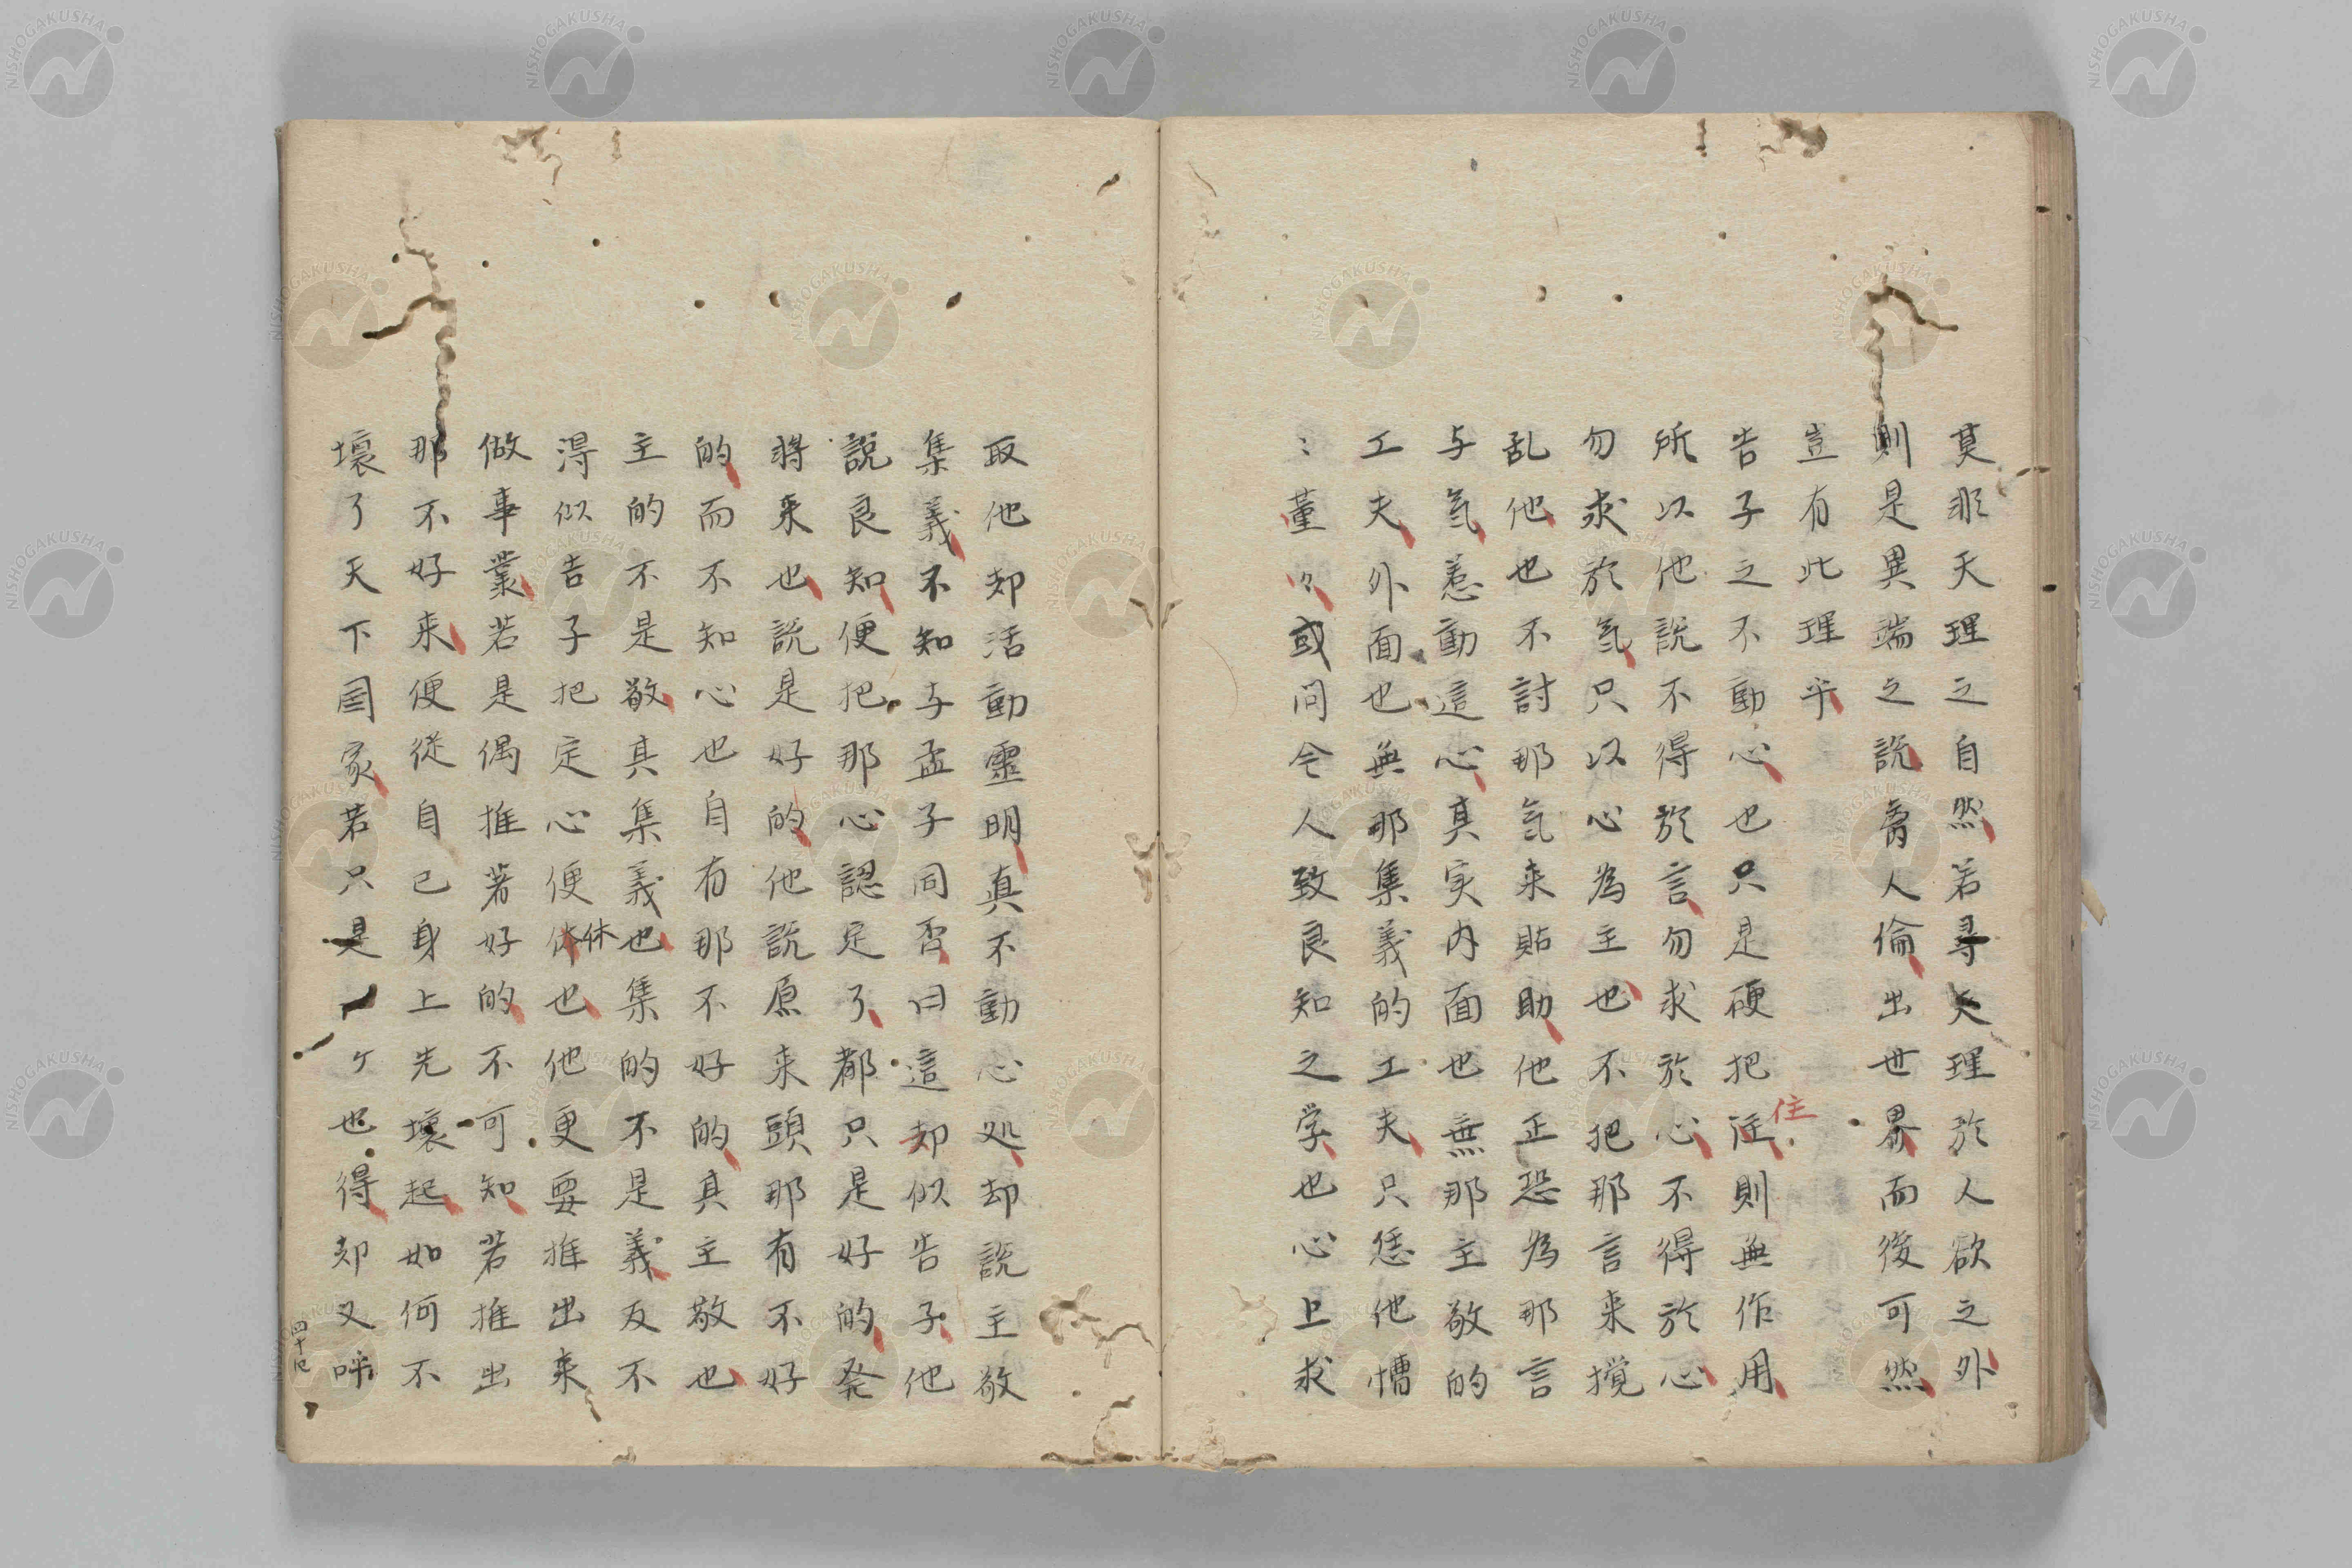 莫非天理之自然若尋天理於人欲之外
則是異端之說 人倫出世界而後可然
豈有此理乎
告子之不動心也只是硬把汪則無作用
住
所以他說不得於言勿求於心不得於心
勿求於氣只以心為主也不把那言来撹
乱他也不討那氣来貼助他正恐為那言
与氣惹動這心真実内面也無那主敬的
工夫外面也無那集義的工夫只恁他懵
〻董々或問令人致良知之学也心上求
取他却活動靈明真不動心処却說主敬
集義不知与孟子同否曰這却似告子他
說良知便把那心認定了都只是好的発
将来也說是好的他說原来頭那有不好
的而不知心也自有那不好的真主敬也
主的不是敬真集義也集的不是義反不
淂似告子把定心便休也他更要推出来
休
做事業若是偶推著好的不可知若推出
那不好来便從自己身上先壊起如何不
壊了天下国家若只是一ケ也得却又呼
四十